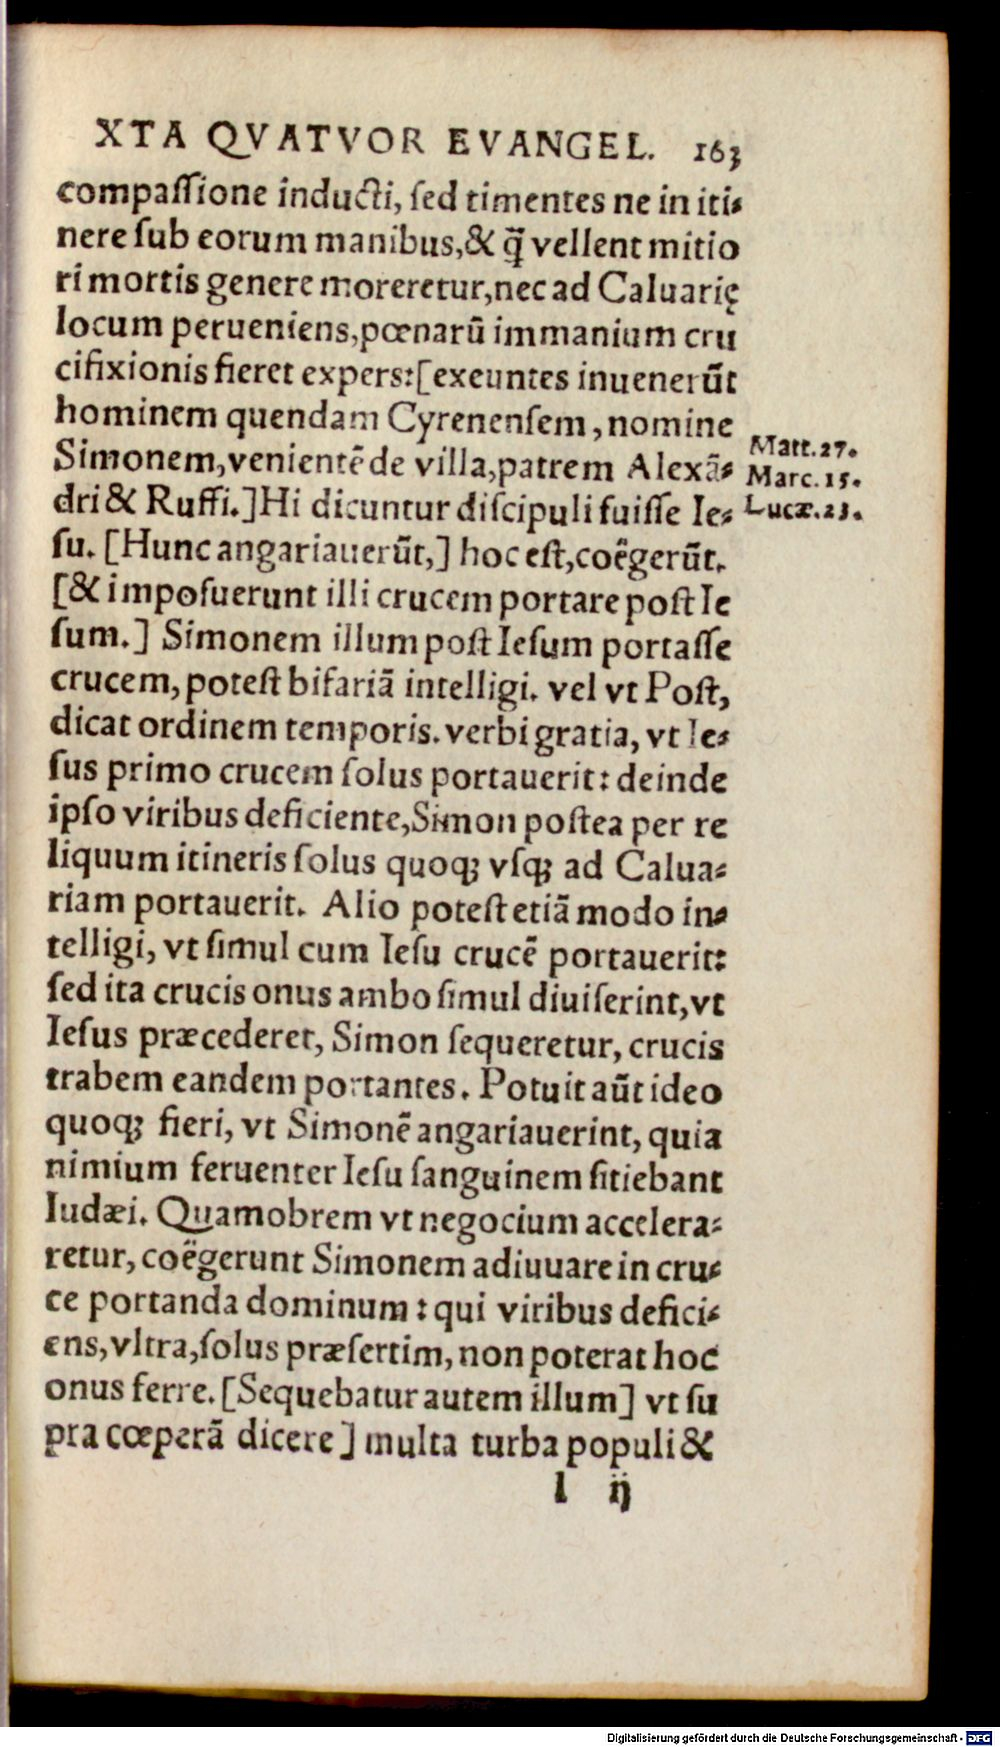 XTA QVATVOR EVANGEL. 163
compaſſione inducti, ſed timentes ne in iti⸗
nere ſub eorum manibus,& q̃ vellent mitio
ri mortis genere moreretur,nec ad Caluarię
locum perueniens,pœnarū immanium cru
cifixionis fieret expers:[exeuntes inuenerūt
hominem quendam Cyrenenſem, nomine
Simonem,venientē de villa,patrem Alexā⸗
dri & Ruffi.]Hi dicuntur diſcipuli fuiſſe Ie⸗
ſu. [Hunc angariauerūt,] hoc eſt,coëgerūt.
[& impoſuerunt illi crucem portare poſt Ie
ſum.] Simonem illum poſt Ieſum portaſſe
crucem, poteſt bifariā intelligi. vel vt Poſt,
dicat ordinem temporis. verbi gratia, vt Ie⸗
ſus primo crucem ſolus portauerit: deinde
ipſo viribus deficiente,Simon poſtea per re
liquum itineris ſolus quoq; vſq; ad Calua⸗
riam portauerit. Alio poteſt etiā modo in⸗
telligi, vt ſimul cum Ieſu crucē portauerit:
ſed ita crucis onus ambo ſimul diuiſerint,vt
Ieſus præcederet, Simon ſequeretur, crucis
trabem eandem portantes. Potuit aūt ideo
quoq; fieri, vt Simonē angariauerint, quia
nimium feruenter Ieſu ſanguinem ſitiebant
Iudæi. Quamobrem vt negocium accelera⸗
retur, coëgerunt Simonem adiuuare in cru⸗
ce portanda dominum : qui viribus defici⸗
ens,vltra,ſolus præſertim, non poterat hoc
onus ferre. [Sequebatur autem illum] vt ſu
pra cœperā dicere ] multa turba populi &
l ij
Matt.27.
Marc.15.
Lucæ.23.
Digitalisierung gefördert durch die Deutsche Forschungsgemeinschaft - DFG